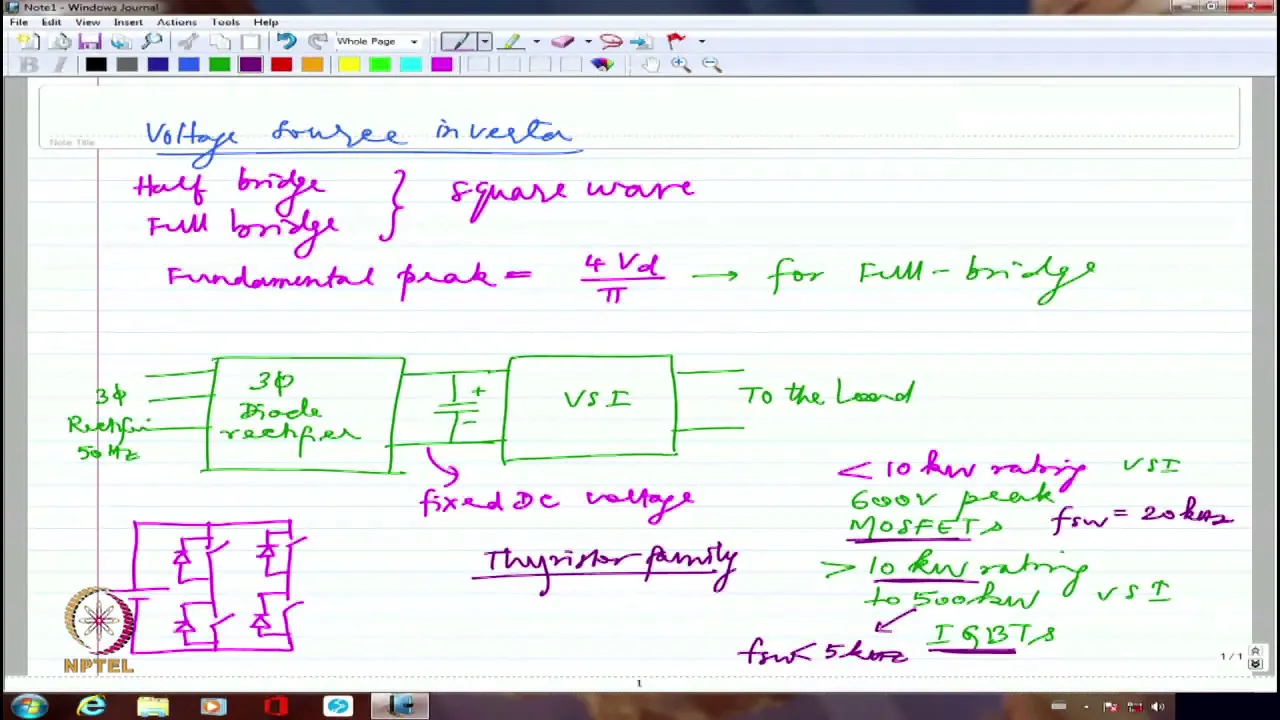 Note1 - Windows Journal
File Edit View Insert Actions Tools Help
Whole Page
B I
Note Title
Voltage source inverter
Half bridge
Full bridge } square wave
Fundamental peak = 4 Vd / π → for Full-bridge
3φ
Rectifier
50 Hz
3φ
Diode
rectifier
+
-
VSI
To the Load
fixed DC voltage
< 10 kW rating VSI
600V peak
MOSFETs fsw = 20 kHz
Thyristor family
> 10 kW rating
to 500kW VSI
IGBTs
fsw < 5 kHz
NPTEL
1 / 1
1